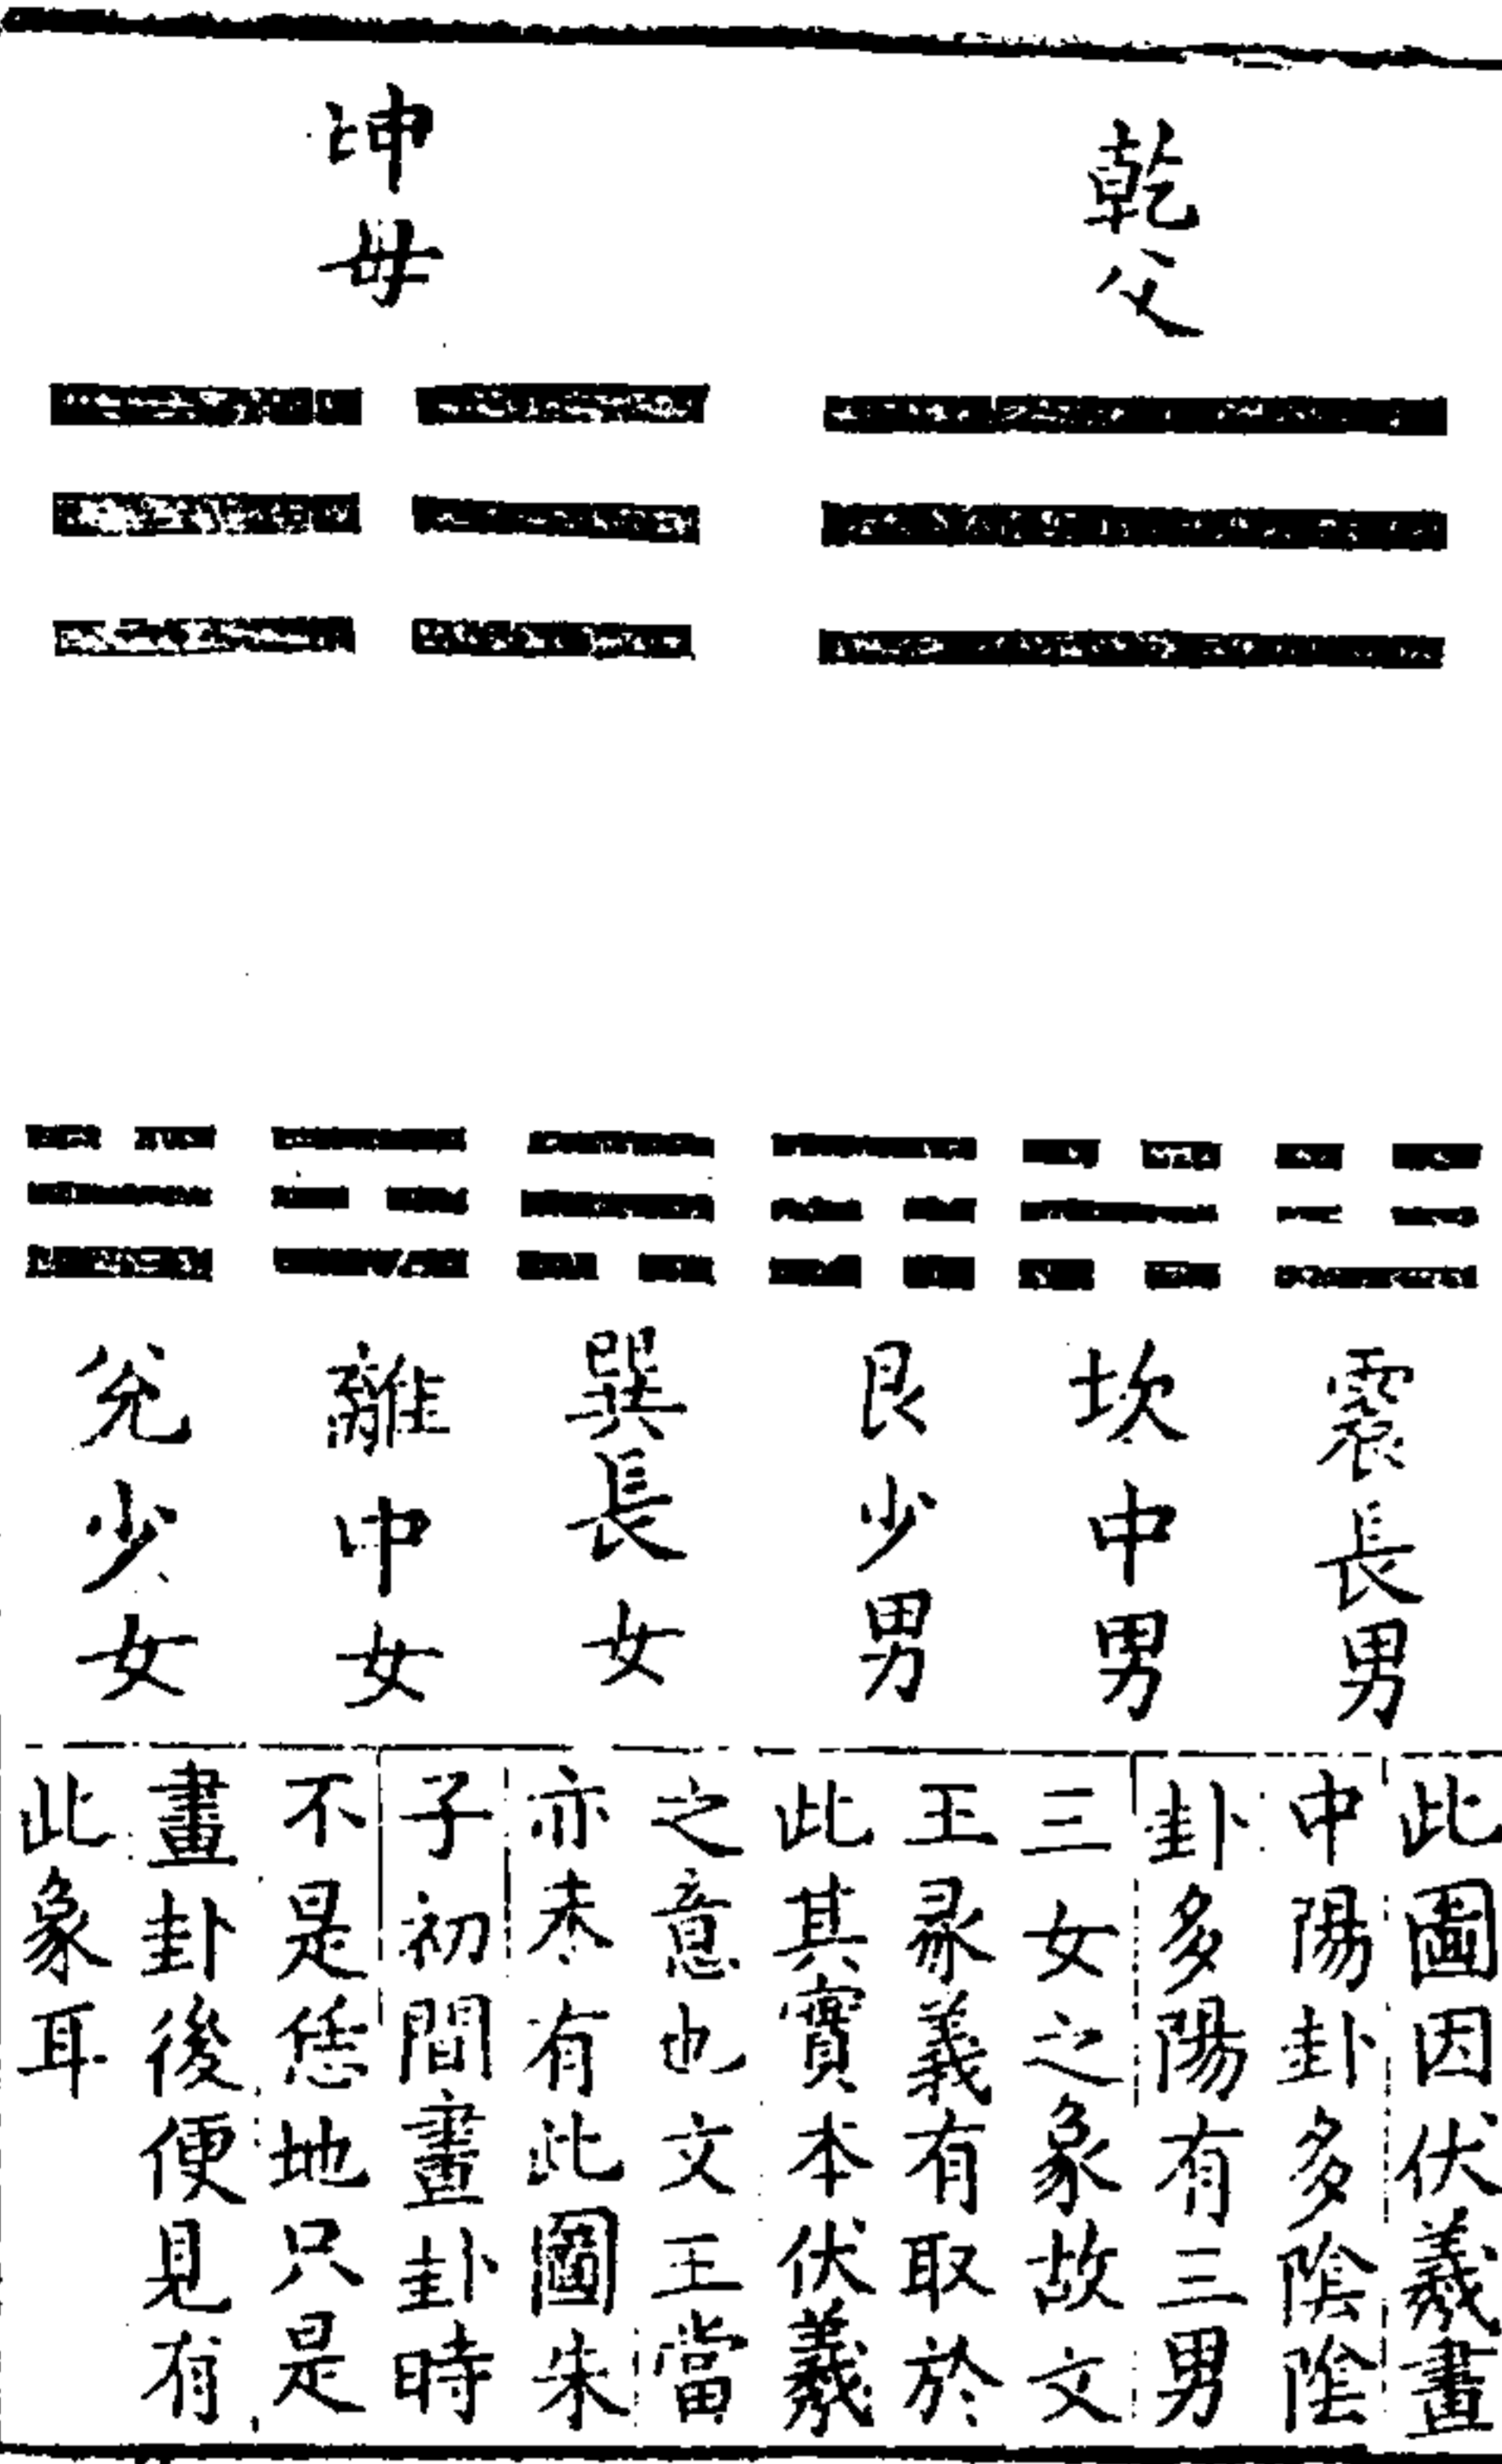 乾父
坤母
震長男
坎中男
艮少男
巽長女
離中女
兌少女
此圖因伏羲畫
中陽卦多陰陰
卦多陽有三男
三女之象故文
王彖義有取於
此其實本伏羲
之意也文王當
亦未有此圖朱
子初間畫卦時
不是恁地只是
畫卦後便見有
此象耳